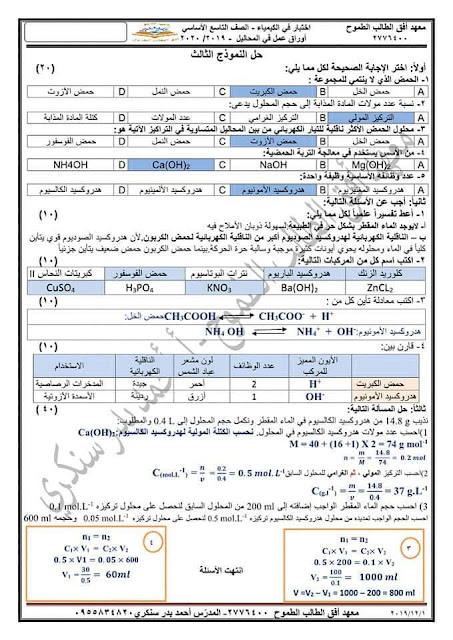 معهد أفق الطالب الطموح
٢٧٧٦٤٠٠
اختبار في الكيمياء - الصف التاسع الأساسي
أوراق عمل في المحاليل - ٢٠١٩ / ٢٠٢٠
حل النموذج الثالث
أولاً: اختر الإجابة الصحيحة لكل مما يلي: (٢٠)
١- الحمض الذي لا ينتمي للمجموعة :
A حمض الخل B حمض الكبريت C حمض النمل D حمض الآزوت
٢- نسبة عدد مولات المادة المذابة إلى حجم المحلول يدعى:
A التركيز المولي B التركيز الغرامي C عدد المولات D كتلة المادة المذابة
٣- محلول الحمض الأكثر ناقلية للتيار الكهربائي من بين المحاليل المتساوية في التراكيز الآتية هو:
A حمض الخل B حمض الآزوت C حمض النمل D حمض الفوسفور
٤- من الأسس يستخدم في معالجة التربة الحمضية:
A Mg(OH)₂ B NaOH C Ca(OH)₂ D NH4OH
٥- عدد وظائفه الأساسية وظيفة واحدة:
A هيدروكسيد المغنيزيوم B هيدروكسيد الأمونيوم C هيدروكسيد الألمنيوم D هيدروكسيد الكالسيوم
ثانياً: أجب عن الأسئلة التالية:
١- أعط تفسيراً علمياً لكل مما يلي: (١٠)
أ- لايوجد الماء المقطر بشكل حر في الطبيعة لسهولة ذوبان الأملاح فيه
ب - الناقلية الكهربائية لهيدروكسيد الصوديوم أكبر من الناقلية الكهربائية لحمض الكربون. لأن هدروكسيد الصوديوم قوي يتأين
كلياً في الماء ومحلوله يحوي أيونات كثيرة موجبة وسالبة حرة الحركة. بينما حمض الكربون حمض ضعيف يتأين جزئياً
٢- اكتب اسم كل من المركبات التالية: (١٠)
كلوريد الزنك هيدروكسيد الباريوم نترات البوتاسيوم حمض الفوسفور كبريتات النحاس II
ZnCL₂ Ba(OH)₂ KNO₃ H₃PO₄ CuSO₄
٣- اكتب معادلة تأين كل من : (١٠)
حمض الخل: CH₃COOH ⇌ CH₃COO⁻ + H⁺
هيدروكسيد الأمونيوم: NH₄ OH ⇌ NH₄⁺ + OH⁻
٤- قارن بين: (١٠)
الأيون المميز للمركب عدد الوظائف لون مشعر عباد الشمس الناقلية الكهربائية الاستخدام
حمض الكبريت H⁺ 2 أحمر جيدة المدخرات الرصاصية
هيدروكسيد الأمونيوم OH⁻ 1 أزرق رديئة الأسمدة الآزوتية
ثالثاً: حل المسألة التالية: (٤٠)
نذيب 14.8 g من هيدروكسيد الكالسيوم في الماء المقطر ونكمل حجم المحلول إلى 0.4 L والمطلوب:
1) احسب عدد مولات هدروكسيد الكالسيوم في المحلول. لحسب الكتلة المولية لهيدروكسيد الكالسيوم: Ca(OH)₂
M = 40 + (16 +1) X 2 = 74 g mol⁻¹
n = m/M = 14.8/74 = 0.2 mol
2) احسب التركيز المولي ، ثم الغرامي للمحلول السابق
C(mol.L⁻¹) = n/v = 0.2/0.4 = 0.5 mol.L⁻¹
C(g.l⁻¹) = m/v = 14.8/0.4 = 37 g.L⁻¹
3) احسب حجم الماء المقطر الواجب إضافته إلى 200 ml من المحلول السابق لنحصل على محلول تركيزه 0.1 mol.L⁻¹
4) احسب الحجم الواجب تمديده من محلول هدروكسيد الكالسيوم تركيزه 0.5 mol.L⁻¹ لنحصل على محلول تركيزه 0.05 mol.L⁻¹ وحجمه 600 ml
٣
n₁ = n₂
C₁× V₁ = C₂× V₂
0.5 × 200 = 0.1 × V₂
V₂ = 100/0.1 = 1000 ml
V =V₂ – V₁ = 1000 – 200 = 800 ml
انتهت الأسئلة
٤
n₁ = n₂
C₁× V₁ = C₂× V₂
0.5 × V₁ = 0.05 × 600
V₁ = 30/0.5 = 60ml
٢٠١٩/١٢/١ معهد أفق الطالب الطموح ٢٧٧٦٤٠٠ - المدرّس أحمد بدر سنكري ٠٩٥٥٨٣٤٨٢٠